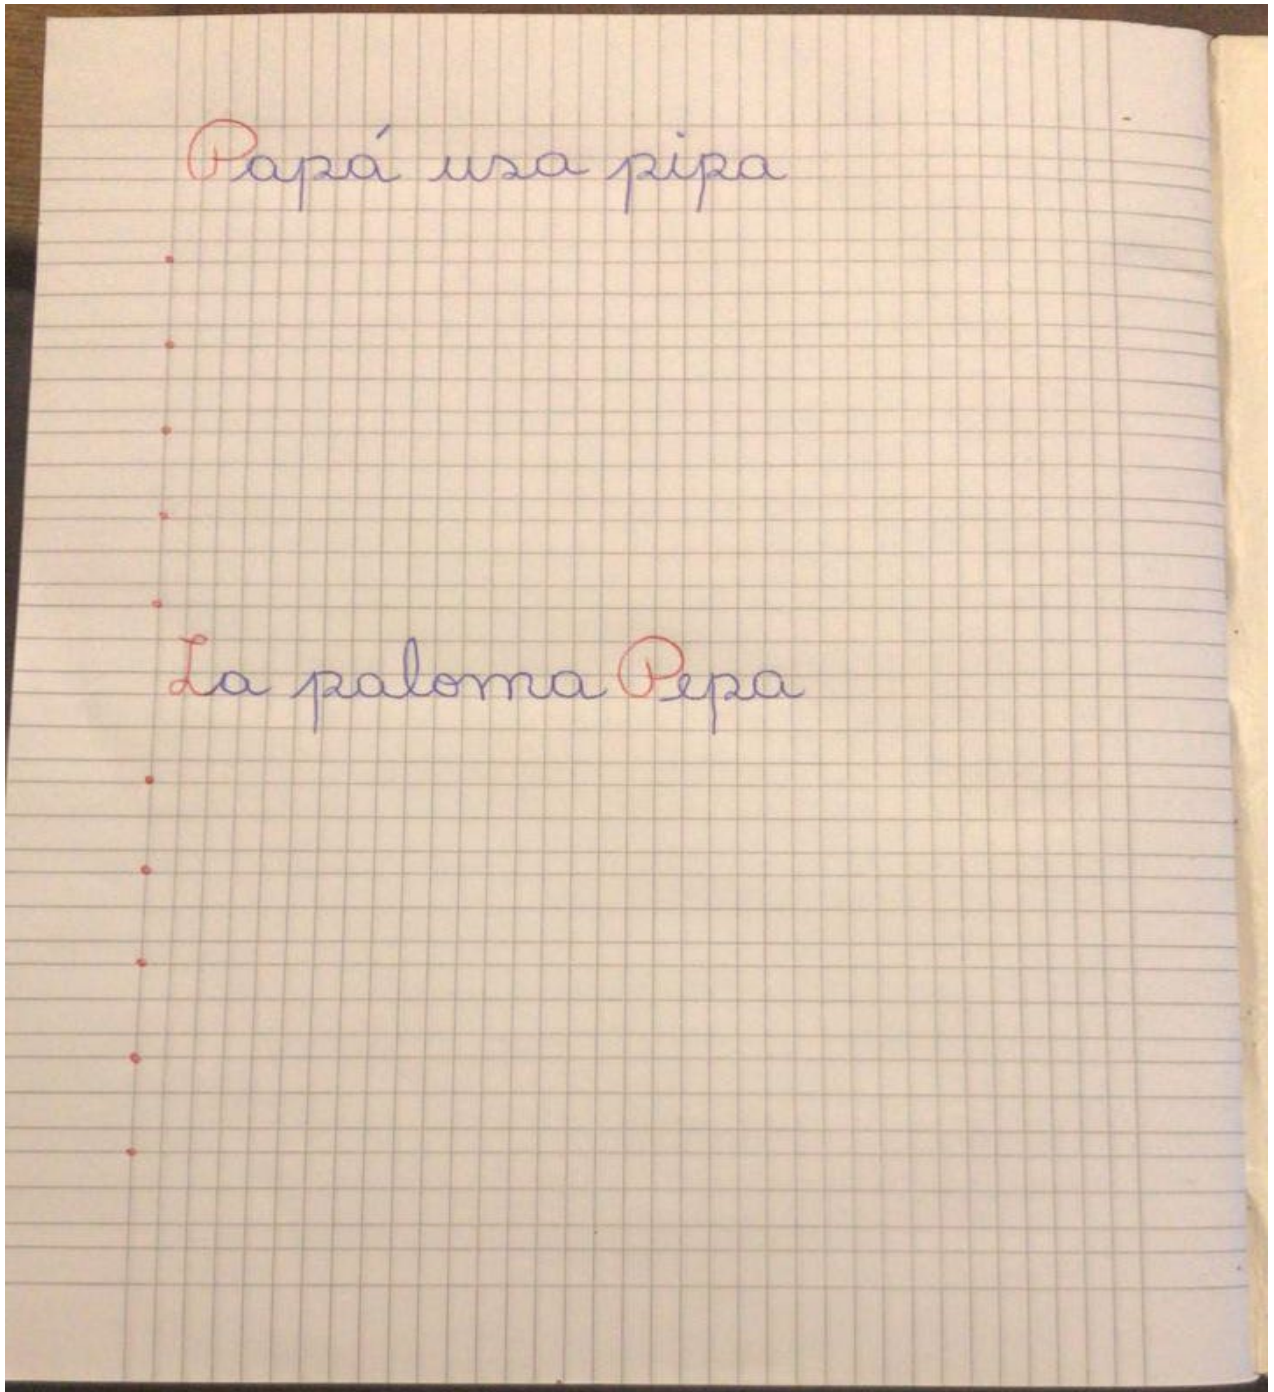 Papá usa pipa
La paloma Pepa